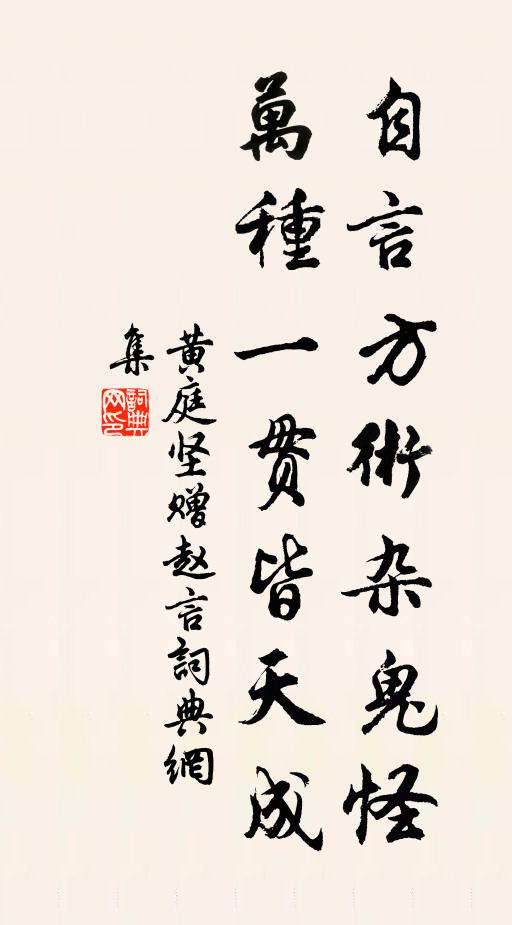 自言方術杂鬼怪
萬種一贯皆天成
黄庭坚赠赵言詞典網
集
詞典
网印